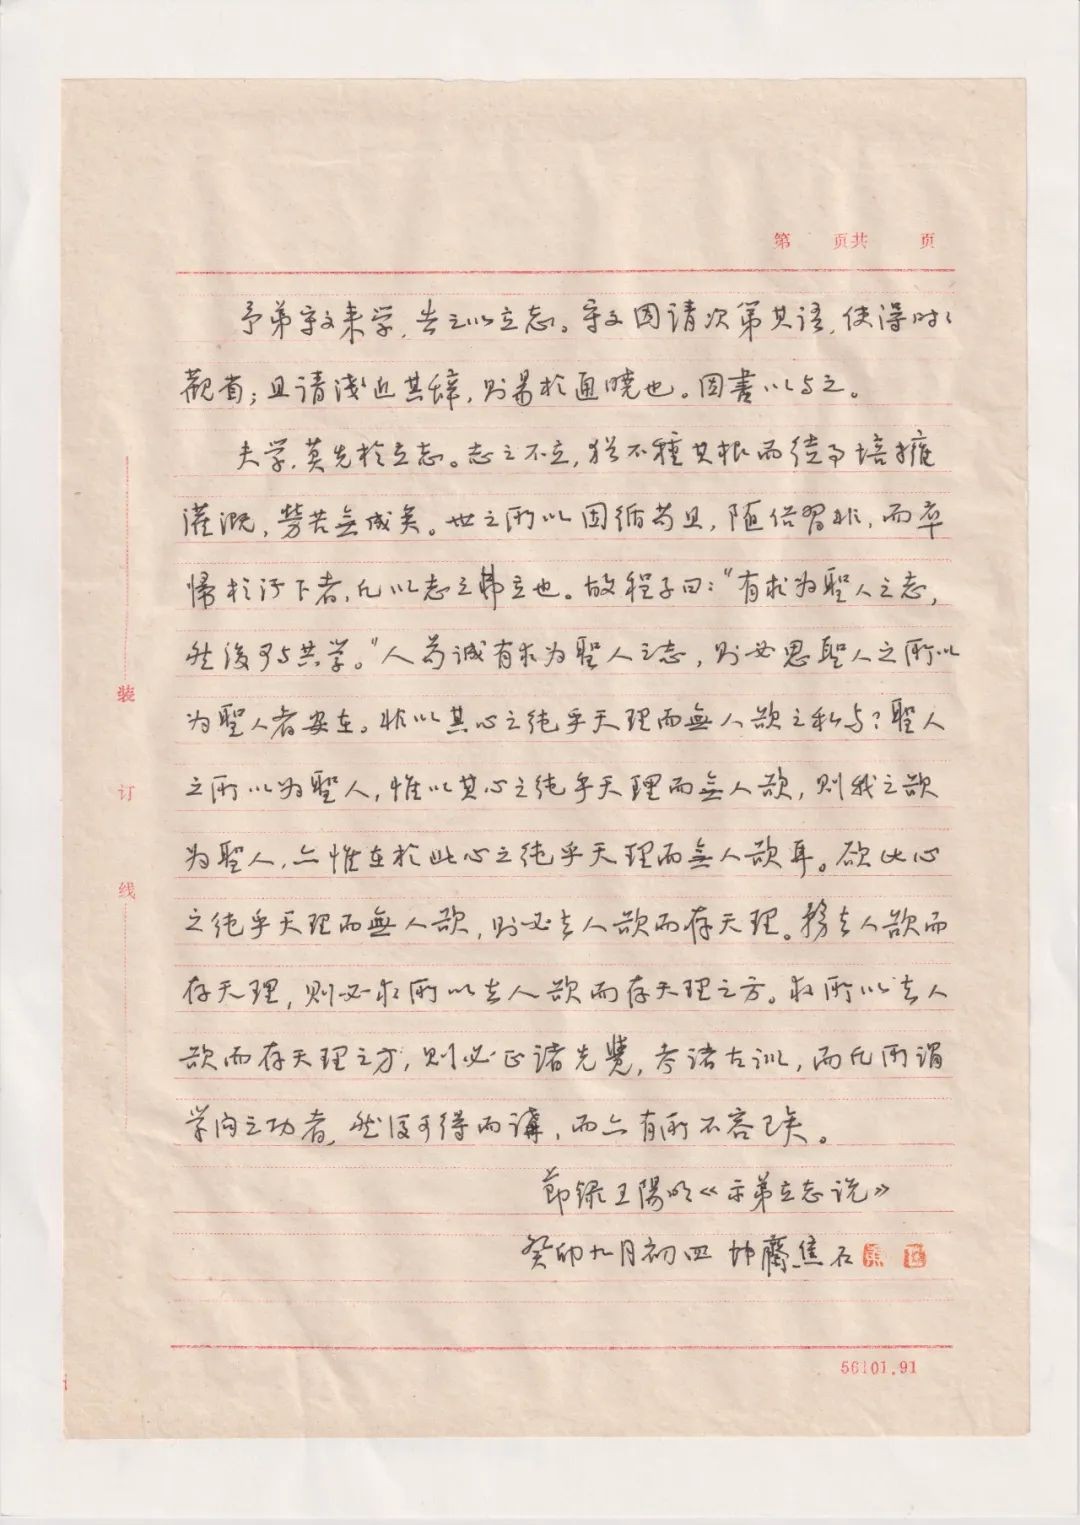 第 页共 页
予弟守文来学，告之以立志。守文因请次第其语，使得时々
觀省；且请淺近其辞，则易於通曉也。因書以与之。
夫学，莫先於立志。志之不立，犹不種其根而徒事培擁
灌溉，勞苦無成矣。世之所以因循苟且，随俗習非，而卒
帰於污下者，凡以志之弗立也。故程子曰：“有求为聖人之志，
然後可与共学。”人苟诚有求为聖人之志，则必思聖人之所以
为聖人者安在。非以其心之纯乎天理而無人欲之私与？聖人
之所以为聖人，惟以其心之纯乎天理而無人欲，则我之欲
为聖人，亦惟在於此心之纯乎天理而無人欲耳。欲此心
之纯乎天理而無人欲，则必去人欲而存天理。務去人欲而
存天理，则必求所以去人欲而存天理之方。求所以去人
欲而存天理之方，则必正诸先覺，考诸古训，而凡所谓
学问之功者，然後可得而講，而亦有所不容已矣。
節録王陽明《示弟立志说》
癸卯九月初四 坤齋焦石
装
订
线
56101.91